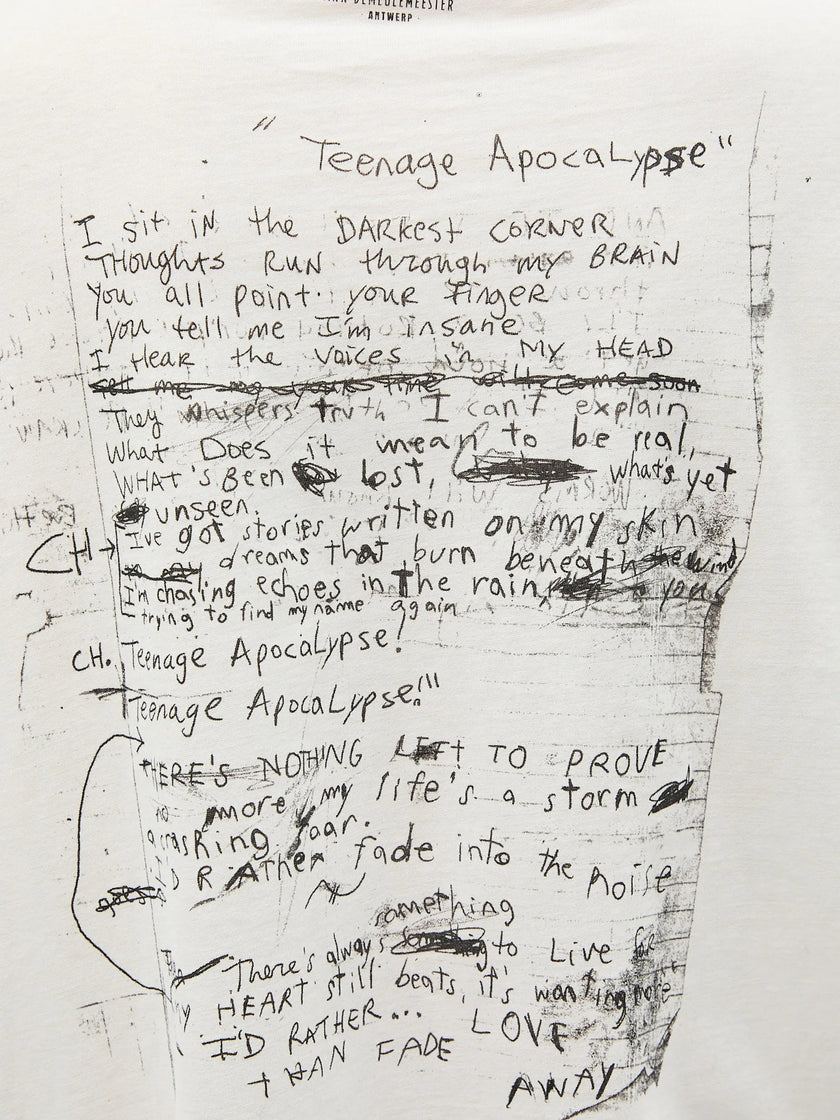 DEMEULEMEESTER
· ANTWERP ·
"Teenage Apocalypse"
I sit iN the DARKEST CORNER
THoughts RUN through my BRAIN
You all point your Finger
you tell me I'm insane
I Hear the Voices in MY HEAD
tell me my your time will come soon
They whispers truth I can't explain
What Does it mean to be real,
WHAT'S Been lost, what's yet
unseen.
I've got stories written on my skin
CH→ dreams that burn beneath the wind
I'm chasing echoes in the rain, you
trying to find my name again
CH. Teenage Apocalypse!
Teenage Apocalypse!"
THERE'S NOTHING LEFT TO PROVE
no more, my life's a storm
a crashing roar.
I'D RATHER fade into the Noise
something
There's always to Live for
MY HEART still beats, it's wanting more"
I'D RATHER... LOVE
THAN FADE
AWAY